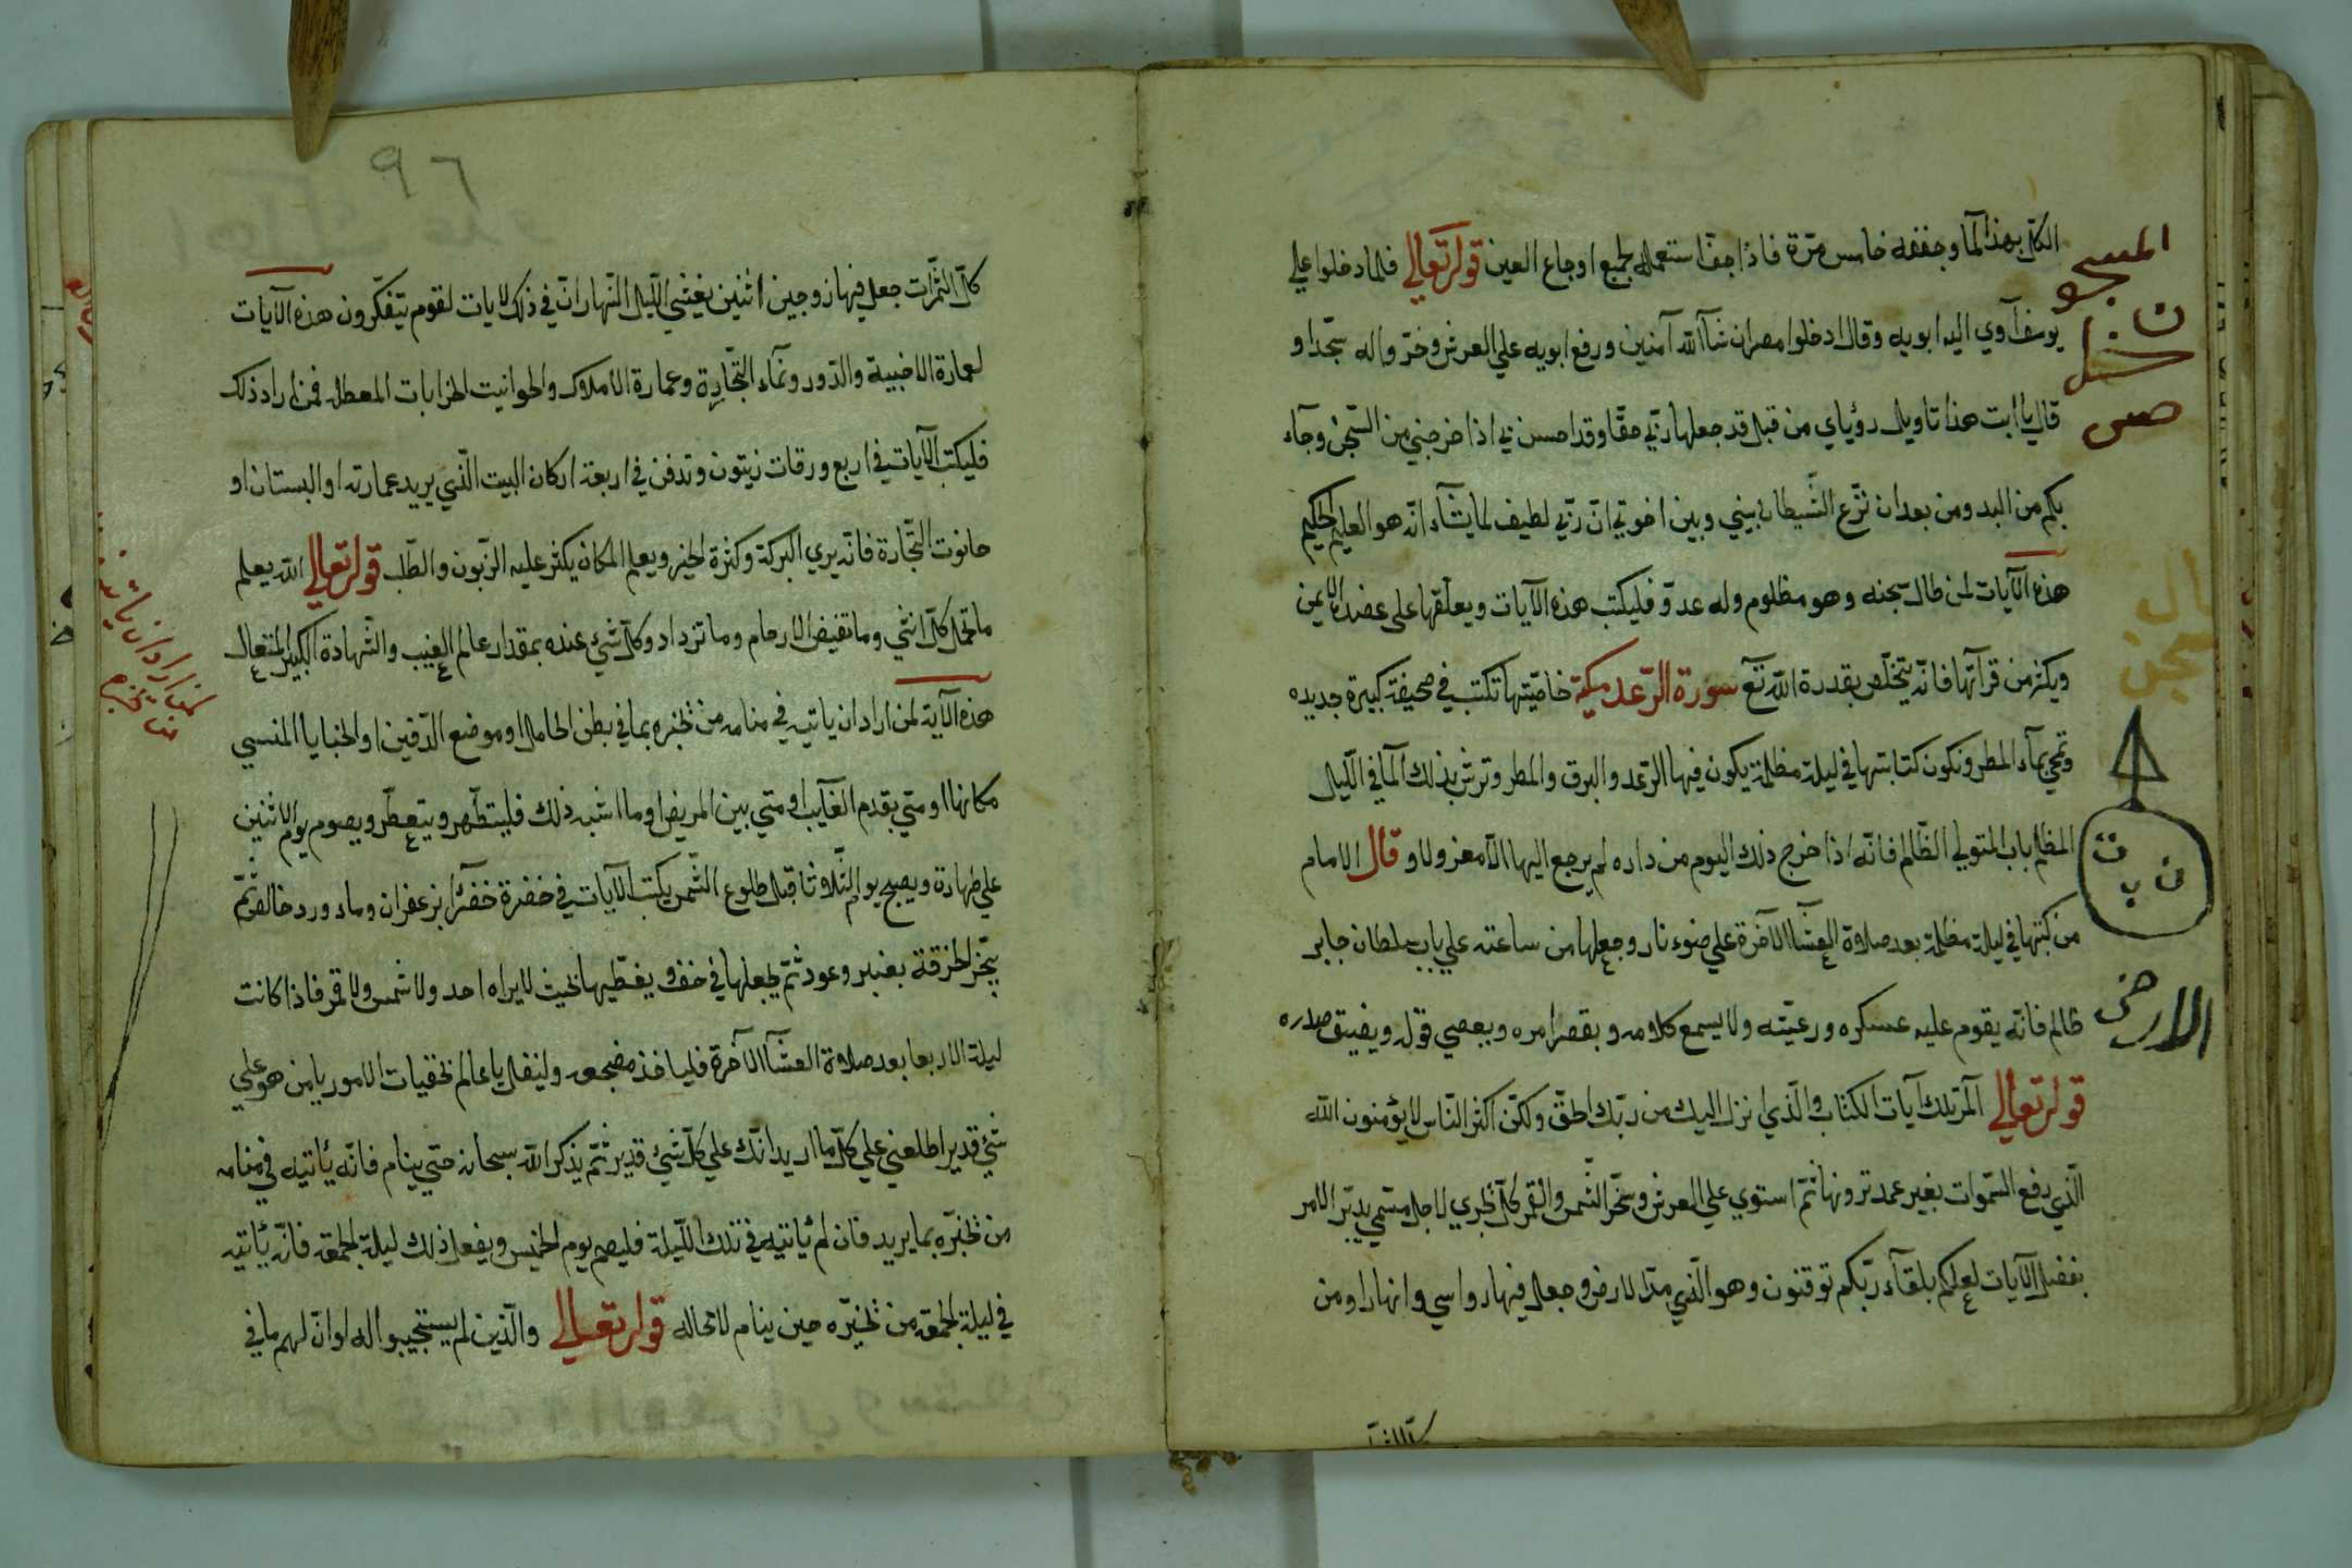 الكل بهذا الما وجففه خامس مرة فاذا جف استعمله لجميع اوجاع العين قوله تعالي فلما دخلوا علي
يوسف آوي اليه ابويه وقال ادخلوا مصر ان شآ الله آمنين ورفع ابويه علي العرش وخروا له سجدا و
قال يا ابت هذا تاويل رؤياي من قبل قد جعلها ربي حقا وقد احسن بي اذ اخرجني من السجن وجآء
بكم من البدو من بعد ان نزع الشيطان بيني وبين اخوتي ان ربي لطيف لما يشآء انه هو العليم الحكيم
هذه الآيات لمن طال سجنه وهو مظلوم وله عدو فليكتب هذه الآيات ويعلقها على عضده الايمن
ويكثر من قرآتها فانه يتخلص بقدرة الله تع سورة الرعد مكية خاصيتها تكتب في صحيفة كبيرة جديده
وتمحي بمآء المطر وتكون كتابتها في ليلة مظلمة يكون فيها الرعد والبرق والمطر وترش بذلك المآ في الليل
المظلم باب المتولي الظالم فانه اذا خرج ذلك اليوم من داره لم يرجع اليها الا معزولا و قال الامام
من كتبها في ليلة مظلمة بعد صلاة العشآ الآخرة علي ضوء نار وجعلها من ساعته علي باب سلطان جابر
ظالم فانه يقوم عليه عسكره ورعيته ولا يسمع كلامه ويقصر امره ويعصي قوله ويضيق صدره
قوله تعالي آلمر تلك آيات الكتاب والذي انزل اليك من ربك الحق ولكن اكثر الناس لا يؤمنون الله
الذي رفع السموات بغير عمد ترونها ثم استوي علي العرش وسخر الشمس والقمر كل يجري لاجل مسمي يدبر الامر
يفصل الآيات لعلكم بلقآء ربكم توقنون وهو الذي مد الارض وجعل فيها رواسي وانهارا ومن
المسجو
ن
الارض
٩٦
كل الثمرات جعل فيها زوجين اثنين يغشي الليل النهار ان في ذلك لايات لقوم يتفكرون هذه الآيات
لعمارة الاخبية والدور ونمآء التجارة وعمارة الاملاك والحوانيت الخرابات المعطله فمن اراد ذلك
فليكتب الآيات في اربع ورقات زيتون وتدفن في اربعة اركان البيت الذي يريد عمارته او البستان او
حانوت التجارة فانه يري البركة وكثرة الخير ويعلم المكان يكثر عليه الزبون والطلب قوله تعالي الله يعلم
ما تحمل كل انثي وما تغيض الارحام وما تزداد وكل شئ عنده بمقدار عالم الغيب والشهادة الكبير المتعال
هذه الآية لمن اراد ان ياتيه في منامه من يخبره بما في بطن الحامل او موضع الدفين او الخبايا المنسي
مكانها او متي يقدم الغآيب او متي يبين المريض او ما اشبه ذلك فليتطهر ويتعطر ويصوم يوم الاثنين
علي طهارة ويصبح يوم الثلاثا قبل طلوع الشمس يكتب الآيات في خضرة خضرآ بزعفران ومآء ورد خالص ثم
يبخر الخرقة بعنبر وعود ثم يجعلها في خف و يغطيها بحيث لا يراه احد ولا شمس ولا قمر فاذا كانت
ليلة الاربعا بعد صلاة العشآ الآخرة فلياخذ مضجعه وليقل يا عالم بخفيات الامور يا من هو علي
شئ قدير اطلعني علي كل ما اريد انك علي كل شئ قدير ثم يذكر الله سبحانه حتي ينام فانه يأتيه في منامه
من يخبره بما يريد فان لم يأتيه في تلك الليلة فليصم يوم الخميس ويفعل ذلك ليلة الجمعة فانه يأتيه
في ليلة الجمعة من يخبره حين ينام لا محاله قوله تعالي والذين لم يستجيبوا له لو ان لهم ما في
لمن اراد ان يأتيه
من يخبره